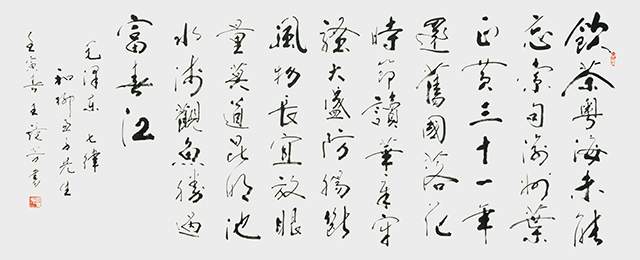 飲茶粤海未能
忘索句渝州葉
正黄三十一年
還舊國落花
時節讀華章牢
騷太盛防腸斷
風物長宜放眼
量莫道昆明池
水淺觀魚勝過
富春江
毛澤東七律
和柳亞子先生
壬寅春王芳書